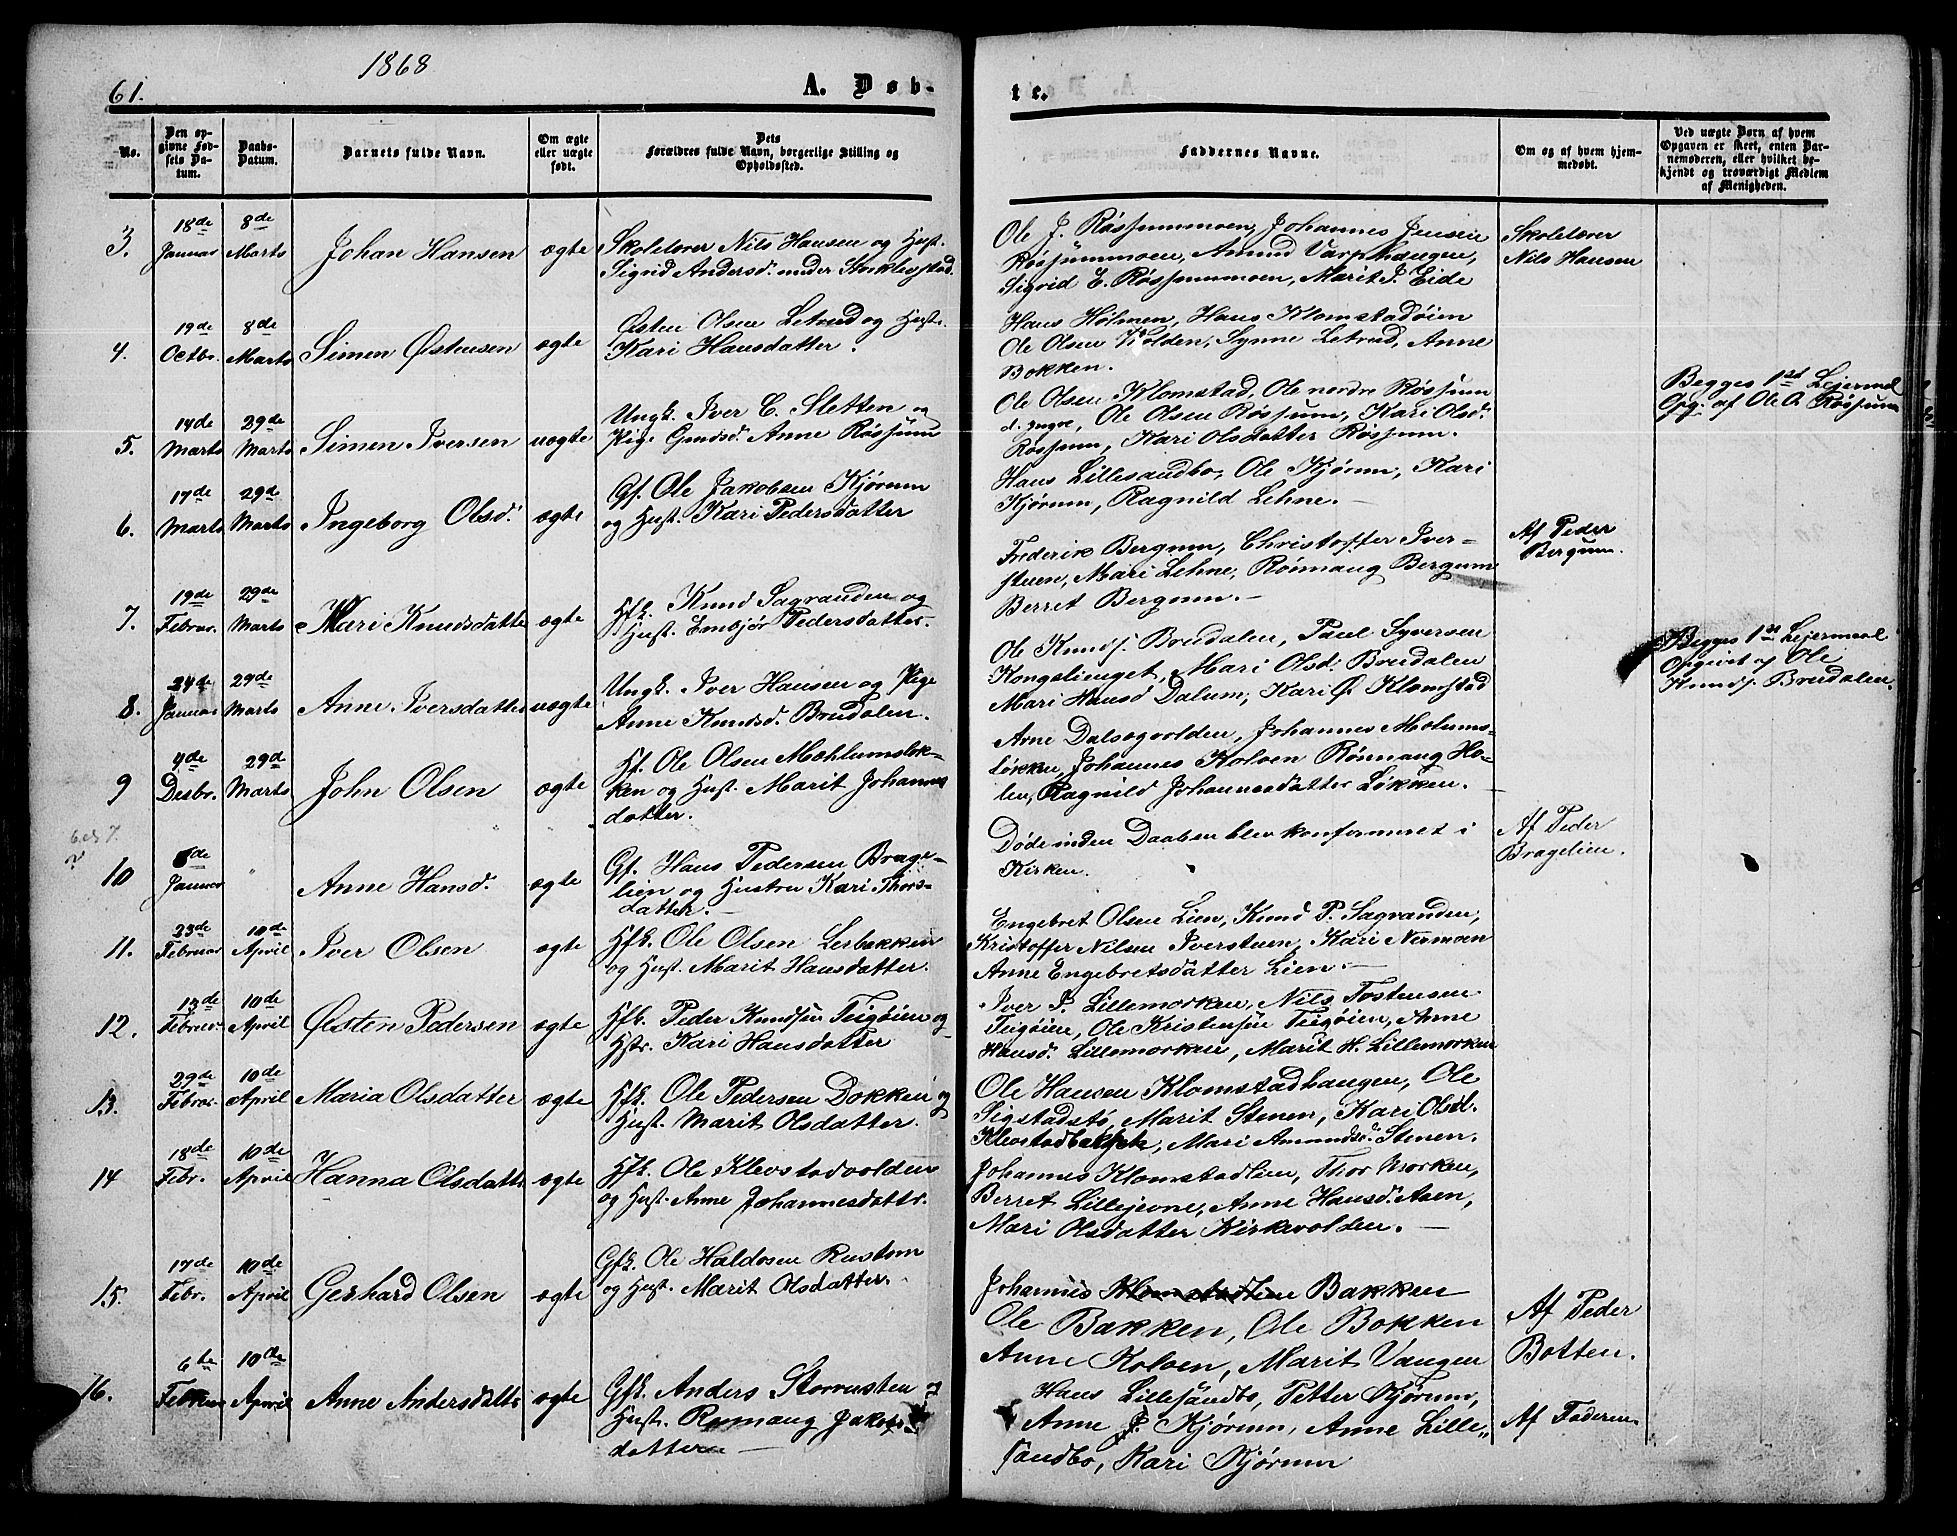 1868
61.
A. Døb-
te.
No.
Den op-
givne Fød-
sels Da-
tum.
Daabs-
Datum.
Barnets fulde Navn.
Om ægte
eller uægte
født.
Dets
Forældres fulde Navn, borgerlige Stilling og
Opholdssted.
Faddernes Navne.
Om og af hvem hjem-
medøbt.
Ved uægte Børn af hvem
Opgaven er skeet, enten Bar-
nemoderen, eller hvilket be-
kjendt og troværdigt Medlem
af Menigheden.
3. 18de Januar 8de Marts Johan Hansen ægte
Skolelærer Nils Hansen og Hust.
Sigrid Andersd. under
Ole J. Røssummoen, Johannes Jensen
Røssummoen, Amund Varphaugen,
Sigrid E. Røssummoen, Marit J. Eide
Skolelærer
Nils Hansen
4. 19de Octbr. 8de Marts Simen Østensen ægte
Østen Olsen Letrud og Hust.
Kari Hansdatter.
Hans Holmen, Hans Klomstadøien
Ole Olsen Kolden, Synne Letrud, Anne
Bokken.
5. 14de Marts 29de Marts Simen Iversen uægte
Ungk. Iver C. Sletten og
Pige Gundsd. Anne Røssum
Ole Olsen Klomstad, Ole nordre Røssum
d. Yngre, Ole Olsen Røssum, Kari Olsd.
Røssum, Kari Olsdatter Røssum.
Begges 1st Leiermaal
Opg. af Ole A. Røssum
6. 17de Marts 29de Marts Ingeborg Olsd. ægte
Gf. Ole Jakobsen Kjørum
og Hust. Kari Pedersdatter
Hans Lillesandbo, Ole Kjørum, Kari
Kjørum, Ragnild Lehne.
7. 19de Februar. 29de Marts Mari Knudsdatter ægte
Hfk. Knud Sagranden og
Hust. Embjør Pedersdatter.
Frederik Bergum, Christoffer Iver-
stuen, Mari Lehne, Rønnaug Bergum
Berret Bergum.
Af Peder
Bergum.
8. 24de Januar 29de Marts Anne Iversdatter uægte
Ungk. Iver Hansen og Pige
Anne Knudsd. Brudalen.
Ole Knuds. Brudalen, Paul Syversen
Kongslienget, Mari Olsd. Brudalen
Mari Hansd Dalum, Kari Ø. Klomstad
Begges 1st Leiermaal
Opgivet af Ole
Knuds. Brudalen.
9 4de Desbr. 29de Marts John Olsen ægte
Hf. Ole Olsen Mæhlumsløk-
ken og Hust. Marit Johannes
datter.
Arne Dalsegvolden, Johannes Molums-
løkken, Johannes Kolven Rønnaug Ho-
len, Ragnild Johannesdatter Løkken.
6 el. 7.
?
10 6de Januar " Anne Hansd. ægte
Gf. Hans Pedersen Brage-
lien og Hustru Kari Thors-
datter.
Døde inden Daaben blev konfirmeret i
Kirken.
Af Peder
Bragelien.
11. 23de Februar 10de April Iver Olsen ægte
Hfk. Ole Olsen Lerbakken
og Hust. Marit Hansdatter.
Engebret Olsen Lien, Knud P. Sagranden,
Kristoffer Nilsen Iverstuen, Kari Nermoen
Anne Engebretsdatter Lien.
12. 13de Februar. 10de April Østen Pedersen ægte
Hfk. Peder Knudsen Teigøien og
Hstr. Kari Hansdatter
Iver P. Lillemorken, Nils Tostensen
Teigøien, Ole Kristensen Teigøien, Anne
Hansd. Lillemorken, Marit H. Lillemorken
13. 29de Februar. 10de April Maria Olsdatter ægte
Hfk. Ole Pedersen Dokken og
Hust. Marit Olsdatter.
Ole Hansen Klomstadhaugen, Ole
Sigstadstø, Marit Stenen, Kari Olsd.
Klevstadbakken, Mari Amundsd. Stenen.
14 18de Febr. 10de April Hanna Olsdattr. ægte
Hfk. Ole Klevstadvolden
og Hust. Anne Johannesdattr.
Johannes Klomstadlien, Thor Morken,
Berret Lillejevne, Anne Hansd. Aaen,
Mari Olsdatter Kirkevolden.
15. 17de Febr. 10de April Gerhard Olsen ægte
Gfk. Ole Haldosen Rustom
og Hust. Marit Olsdatter.
Johannes Klomstadlien Bakken
Ole Bakken, Ole Bokken
Anne Kolven, Marit Vangen
Af Peder
Botten.
16. 6te Februar 10de April Anne Andersdattr ægte
Gfk. Anders Storrusten og
Hust. Rønnaug Jakobs
datter
Hans Lillesandbo, Petter Kjørum,
Anne J. Kjørum, Anne Lille-
sandbo, Kari Kjørum
Af Faderen